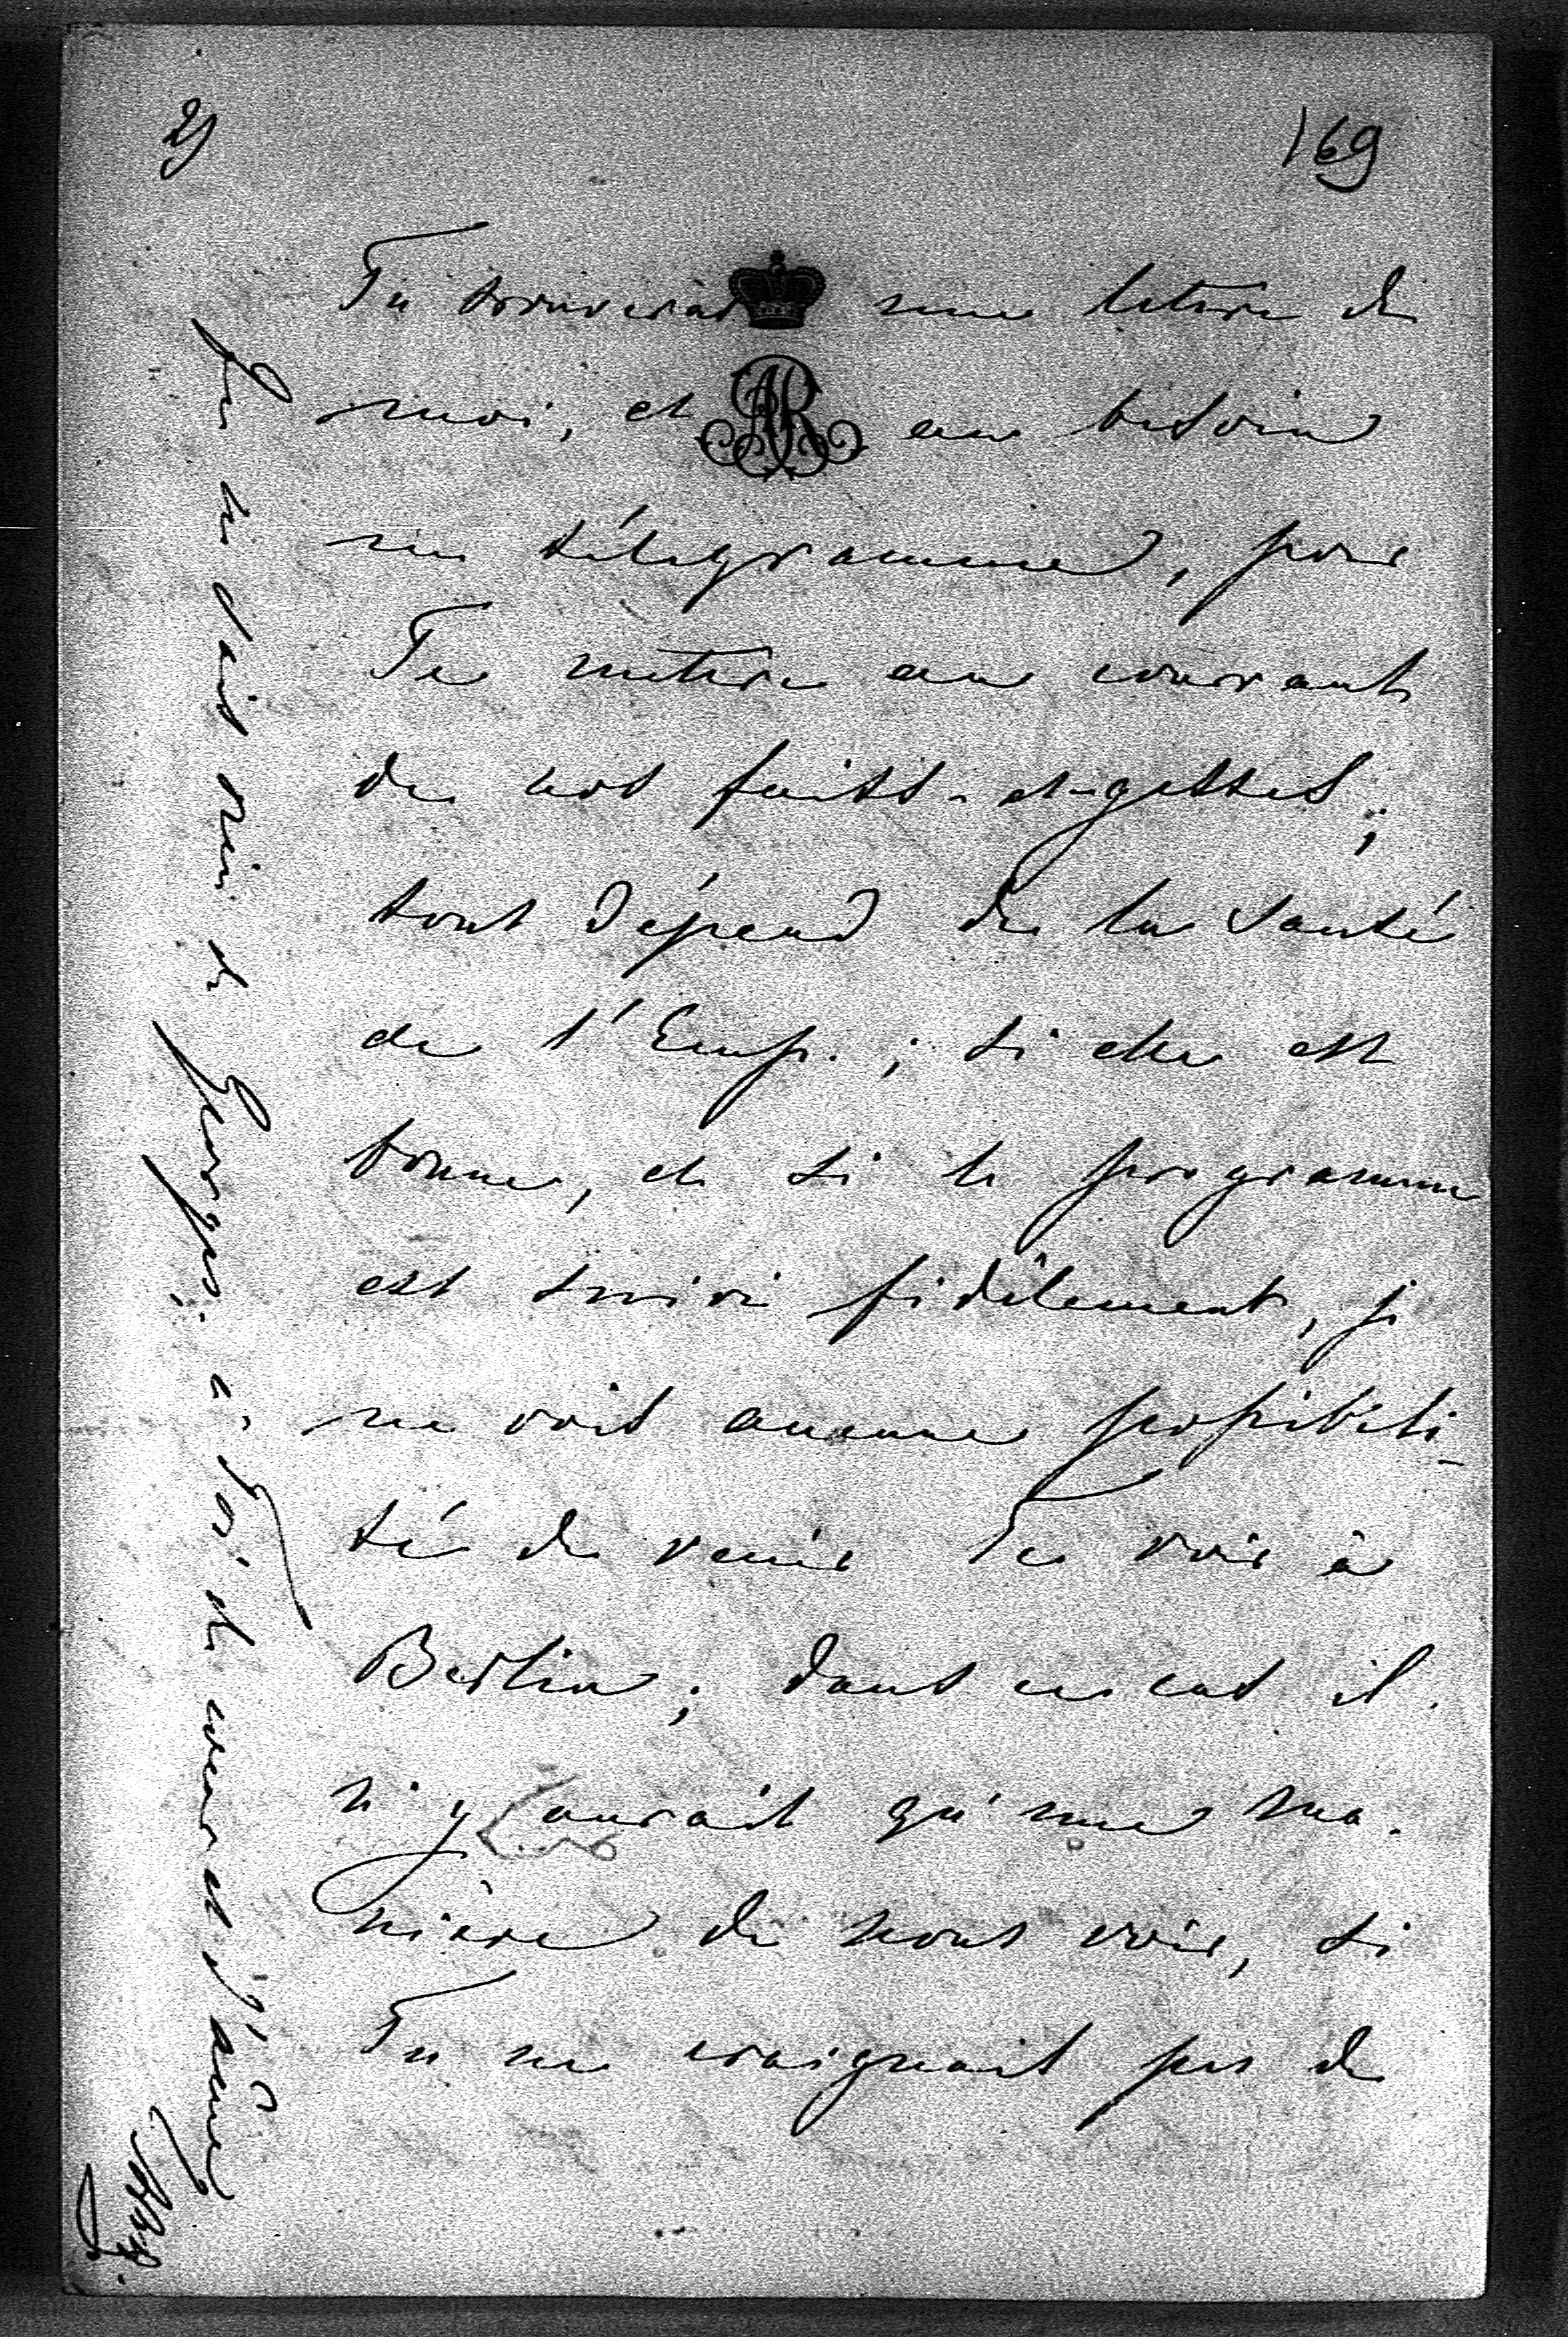 2)
169
Tu trouveras une lettre de
moi, et au besoin
un télégramme, pour
Te mettre au courant
de nos faits-et-gestes;
tout dépend de la santé
de l'Emp.; si elle est
bonne, et si le programme
est suivi fidèlement, je
ne vois aucune possibili-
té de venir Te voir à
Berlin; dans ce cas il
n'y aurait qu'une ma-
nière de nous voir, si
Tu ne craignais pas de
Je ne sais rien de Georges. à Toi de cœur et d'âme